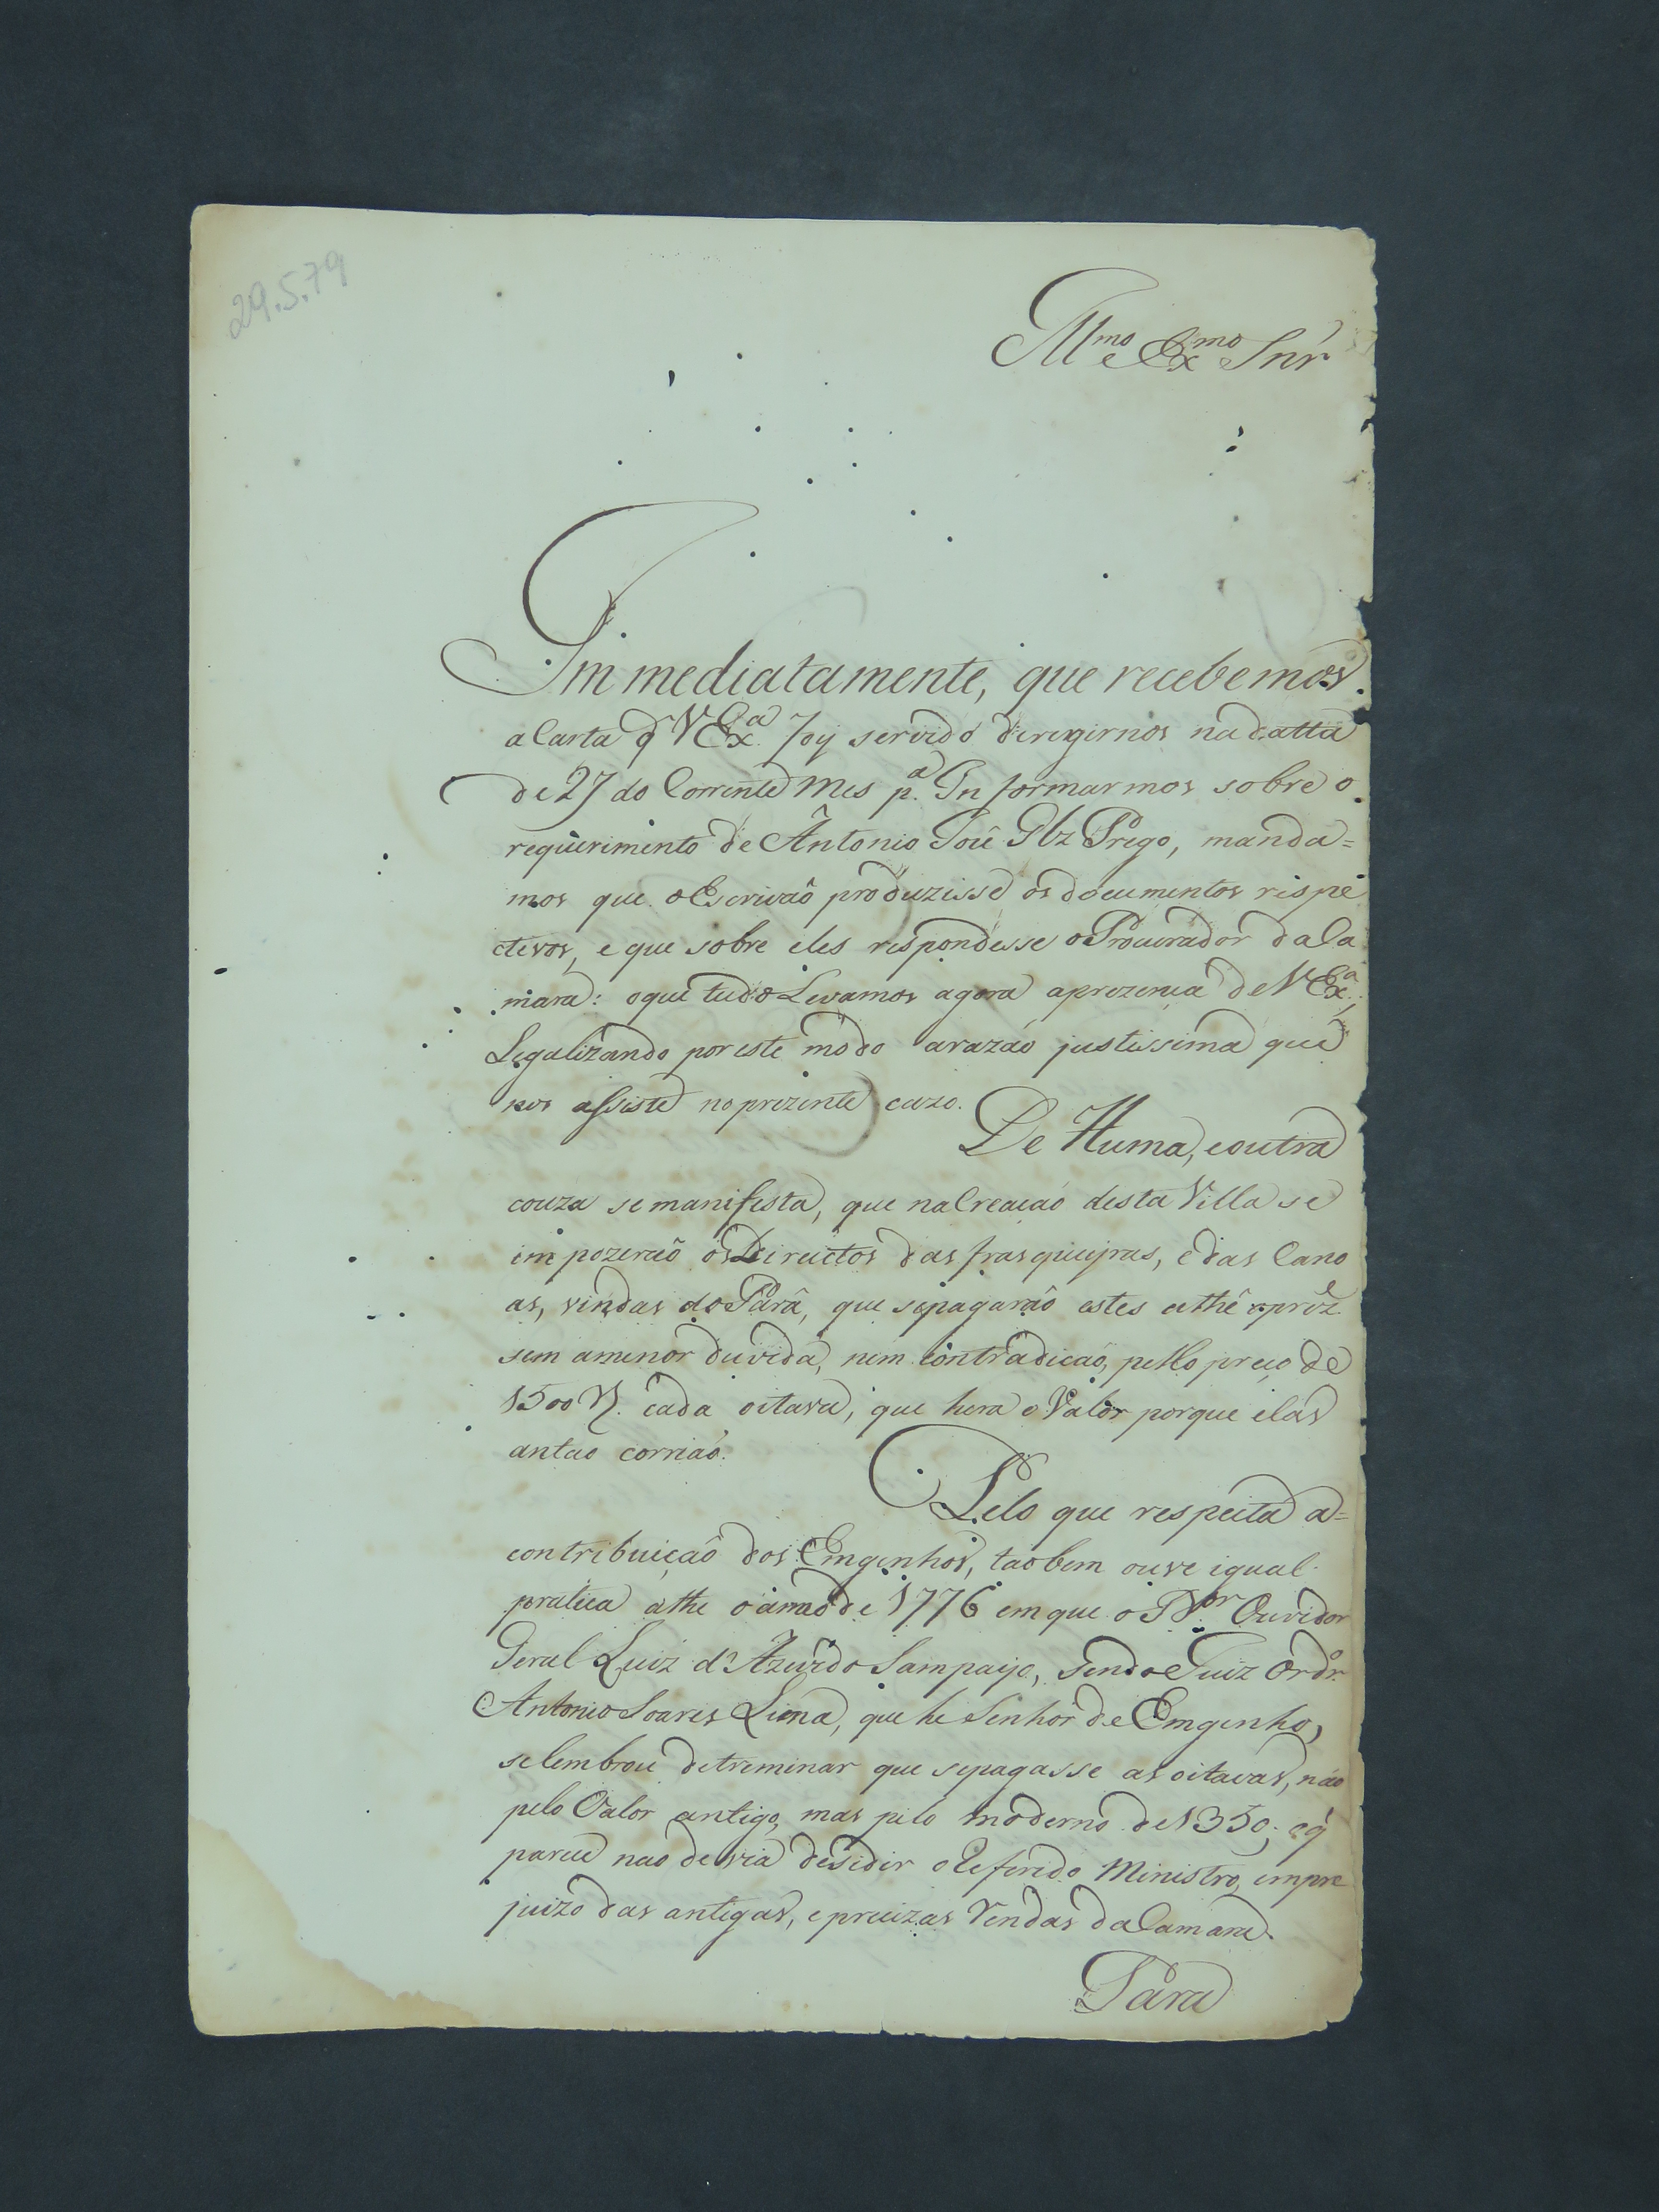 29.5.79
Illmo e Exmo Snr
Immediatamente, que recebemos
a Carta q̃ V Exa. foy servido deregirnos na datta
de 27 do Corrente Mes pa. In formarmos sobre o
requerimento de Antonio Joze Glz Prego, manda=
mos que o Escrivaõ produzisse os documentos respe
ctivos, e que sobre eles respondesse o Procurador da Ca
mara: o que tudo Levamos agora a prezença de V Exa;
Legalizando por este modo a razaõ justissima que
nos assiste no prezente cazo.
De Huma, e outra
couza se manifesta, que na Creaçaõ desta Villa se
im pozeraõ os Direictos das frasqueijras, e das Cano
as, vindas do Pará, que se pagaraõ estes athé o prez.e
sem a menor duvida, nem contradicaõ, pello preço de
1500 R. cada oitava, que hera o Valor porque elas
antao corriaõ.
Pelo que respeita a=
contribuiçaõ dos Emgenhos, taobem ouve igual
pratica athe o anno de 1776 em que o Dor. Ouvidor
Geral Luiz d'Azevedo Sampayo, sendo Juiz Ordr.
Antonio Soares Lima, que he Senhor de Emgenho,
se lembrou detreminar que se pagasse as oitavas, naõ
pelo Valor antigo, mas pelo moderno de 1350; e q̃
parece nao devia desidir o Referido Ministro, em pre
juizo das antigas, e precizas Rendas da Camara.
Para